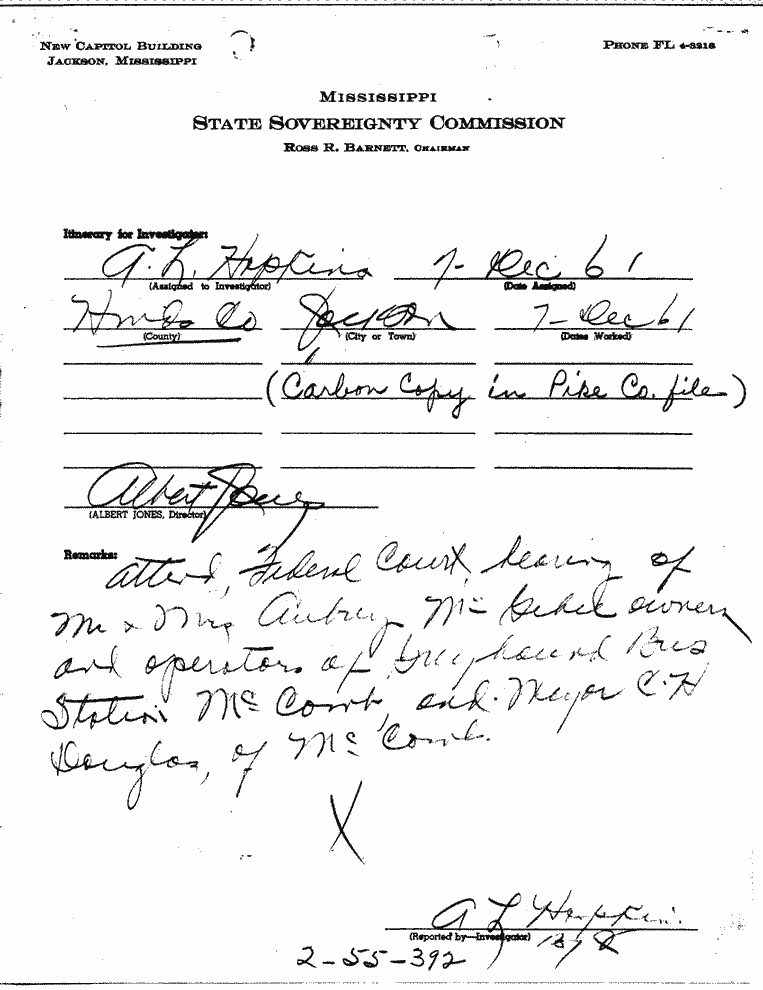 NEW CAPITOL BUILDING
JACKSON, MISSISSIPPI
PHONE FL 4-3218
MISSISSIPPI
STATE SOVEREIGNTY COMMISSION
ROSS R. BARNETT, CHAIRMAN
Itinerary for Investigator:
A. L. Hopkins 7- Dec 61
(Assigned to Investigator) (Date Assigned)
Hinds Co Jackson 7-Dec 61
(County) (City or Town) (Dates Worked)
(Carbon Copy in Pike Co. file)
Albert Jones
(ALBERT JONES, Director)
Remarks:
attend, Federal Court, hearing of
Mr & Mrs Aubrey owners
and operators of Greyhound Bus
Station McComb, and Mayor C. H
Douglas, of McComb.
X
A L Hopkins
(Reported by—Investigator)
2-55-392